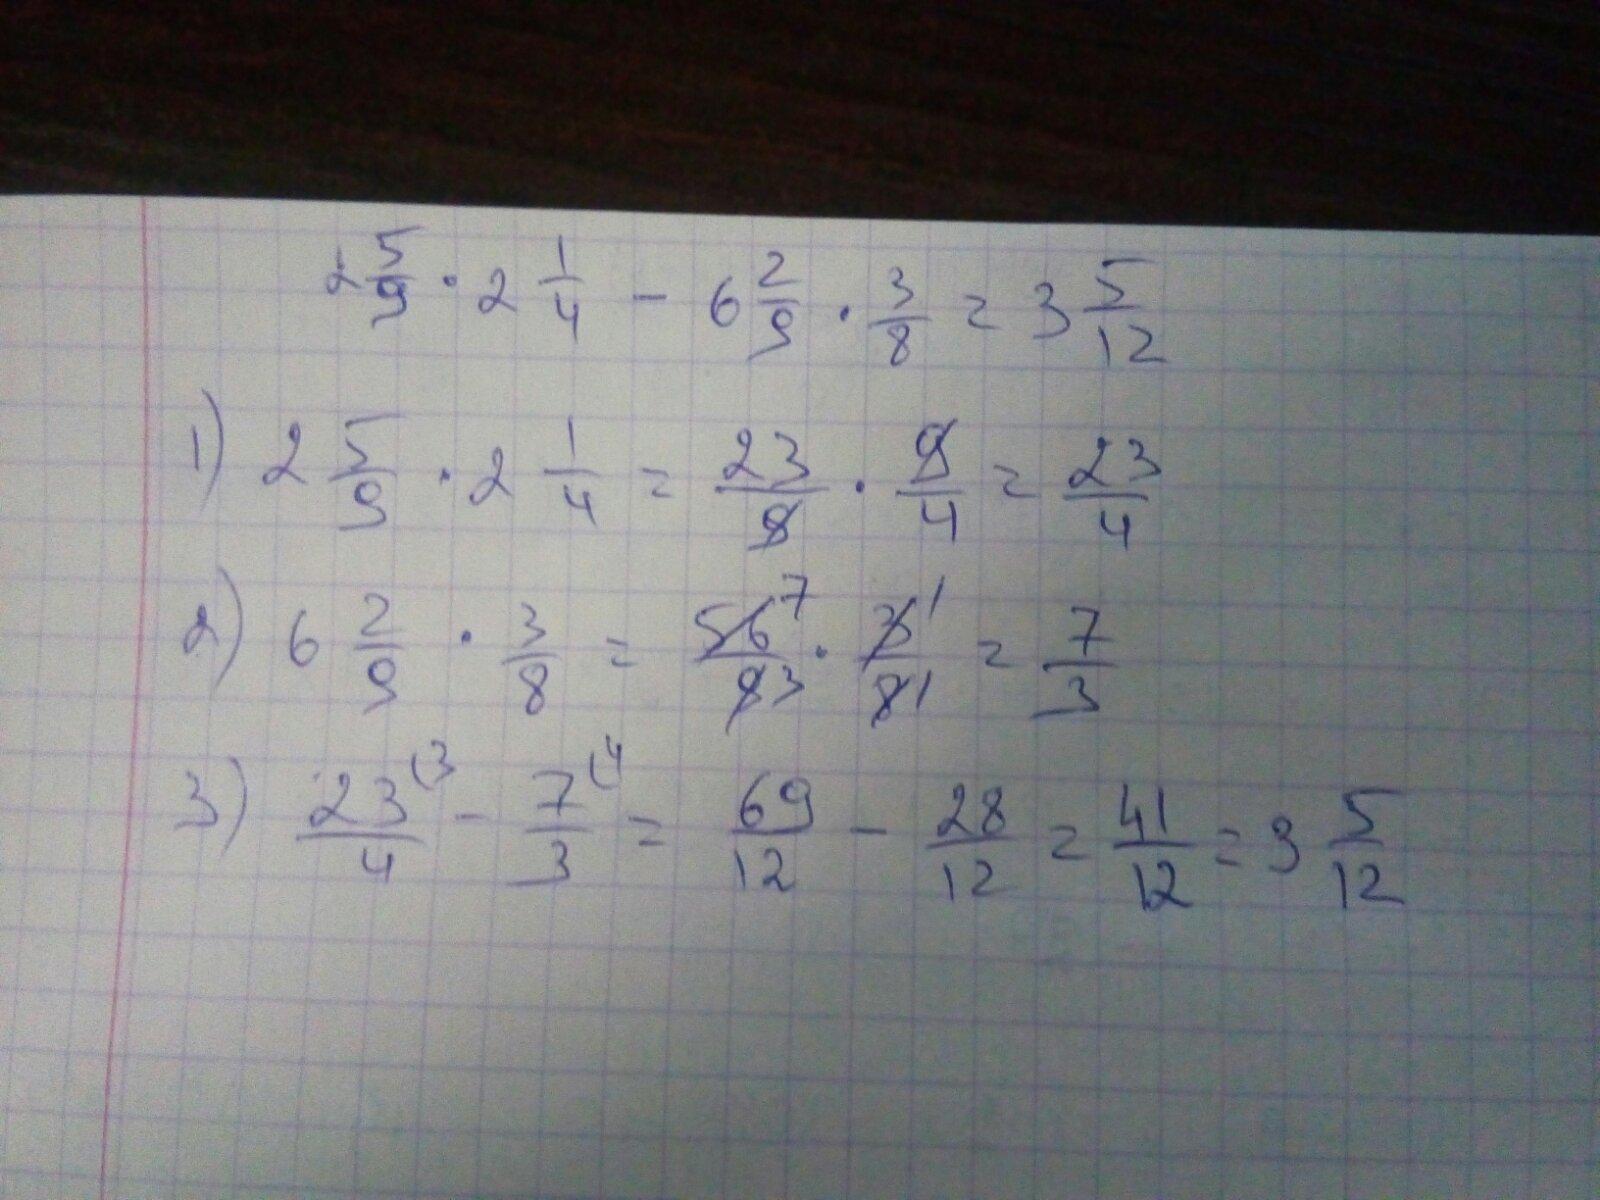 2 5/9 · 2 1/4 − 6 2/9 · 3/8 = 3 5/12
1) 2 5/9 · 2 1/4 = 23/9 · 9/4 = 23/4
2) 6 2/9 · 3/8 = 56 7/9 3 · 3 1/8 1 = 7/3
3) 23(3/4 − 7(4/3 = 69/12 − 28/12 = 41/12 = 3 5/12